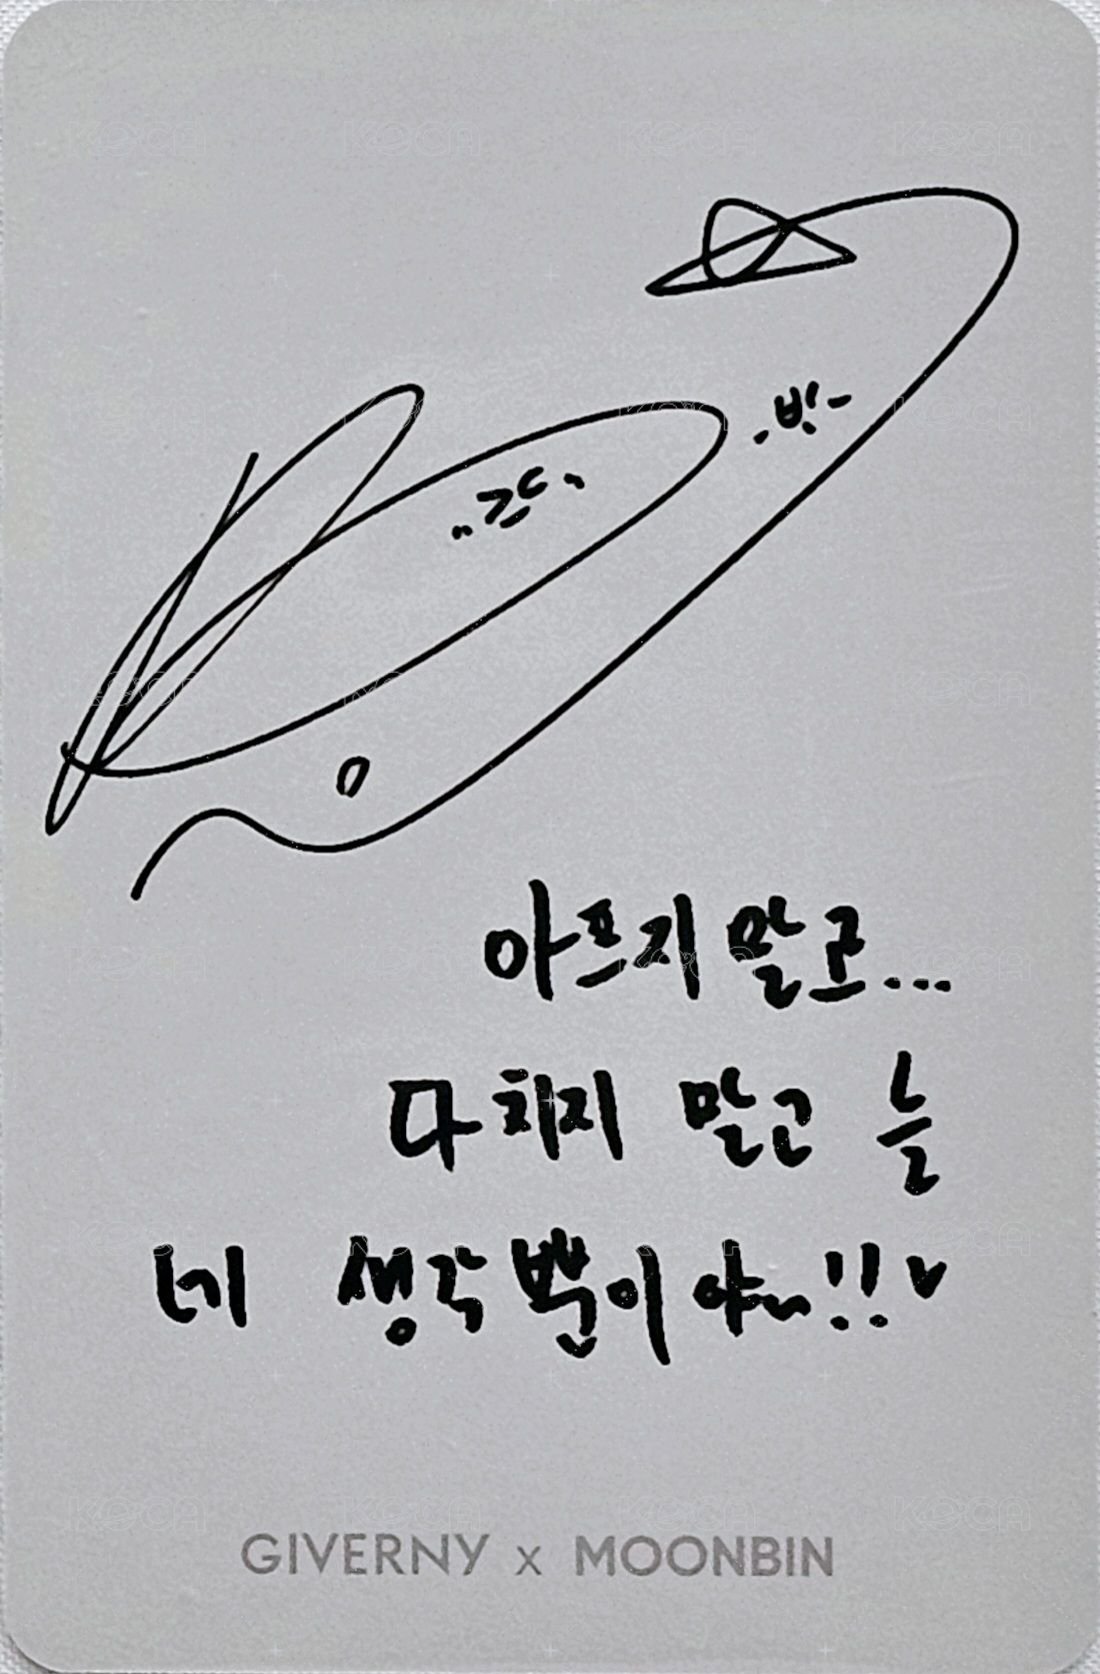 아프지 말고...
다치지 말고 늘
네 생각뿐이야~!!♥
GIVERNY x MOONBIN